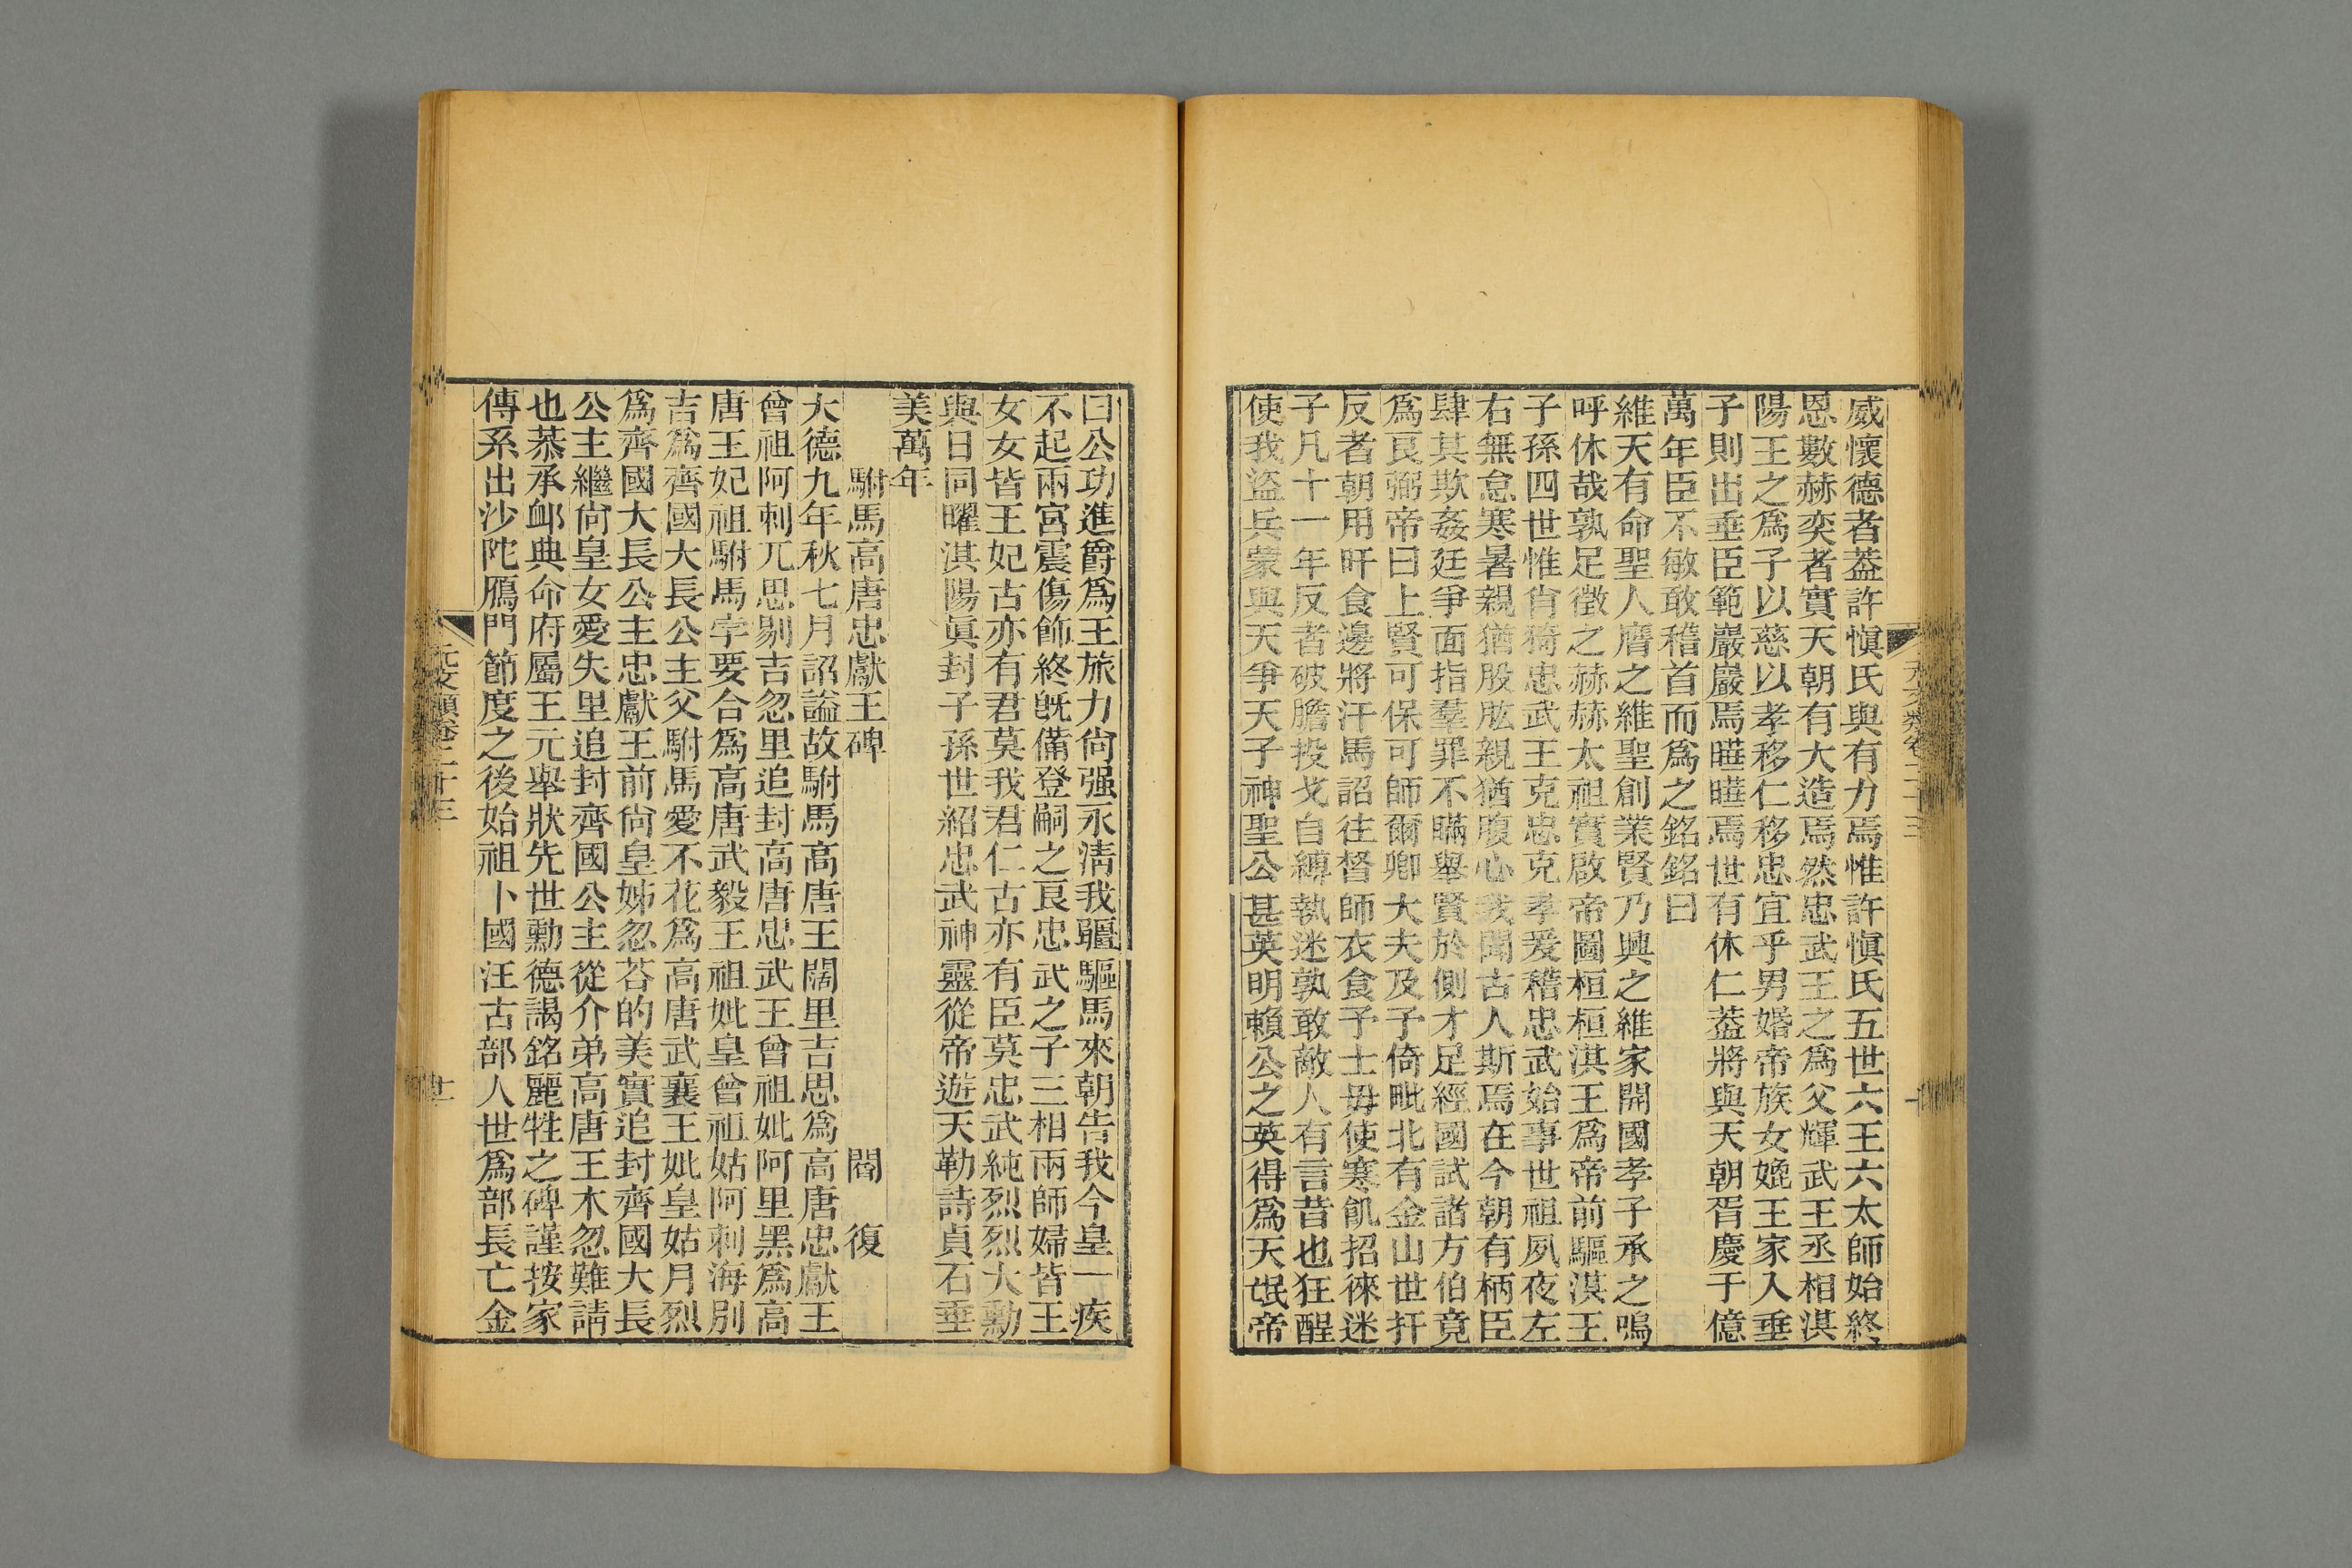 威懷德者蓋許愼氏與有力焉惟許愼氏五世六王六太師始終
恩數赫奕者實天朝有大造焉然忠武王之爲父輝武王丞相淇
陽王之爲子以慈以孝移仁移忠宜乎男婚帝族女媲王家入垂
子則出垂臣範巖巖焉曄曄焉世有休仁蓋將與天朝胥慶于億
萬年臣不敏敢稽首而爲之銘銘曰
維天有命聖人膺之維聖創業賢乃興之維家開國孝子承之嗚
呼休哉孰足徵之赫赫太祖實啟帝圖桓桓淇王爲帝前驅漠王
子孫四世惟肖猗忠武王克忠克孝爰稽忠武始事世祖夙夜左
右無怠寒暑親猶股肱親猶腹心我聞古人斯焉在今朝有柄臣
肆其欺姦廷爭面指羣罪不瞞舉賢於側才足經國試諸方伯竟
爲良弼帝曰上賢可保可師爾卿大夫及子倚毗北有金山世扞
反者朝用旰食邊將汗馬詔往督師衣食予士毋使寒飢招徠迷
子凡十一年反者破膽投戈自縛執迷孰敢敵人有言昔也狂酲
使我盜兵蒙與天爭天子神聖公甚英明賴公之英得爲天氓帝
曰公功進爵爲王旅力尙强永淸我疆驅馬來朝告我今皇一疾
不起兩宮震傷飾終旣備登嗣之良忠武之子三相兩師婦皆王
女女皆王妃古亦有君莫我君仁古亦有臣莫忠武純烈烈大勳
與日同曜淇陽眞封子孫世紹忠武神靈從帝遊天勒詩貞石垂
美萬年
駙馬高唐忠獻王碑　閻　復
大德九年秋七月詔謚故駙馬高唐王闊里吉思爲高唐忠獻王
曾祖阿剌兀思剔吉忽里追封高唐忠武王曾祖妣阿里黑爲高
唐王妃祖駙馬孛要合爲高唐武毅王祖妣皇曾祖姑阿剌海別
吉爲齊國大長公主父駙馬愛不花爲高唐武襄王妣皇姑月烈
爲齊國大長公主忠獻王前尙皇姊忽荅的美實追封齊國大長
公主繼尙皇女愛失里追封齊國公主從介弟高唐王木忽難請
也恭承邮典命府屬王元舉狀先世勳德謁銘麗牲之碑謹按家
傳系出沙陀鴈門節度之後始祖卜國汪古部人世爲部長亡金
元文類卷二十三